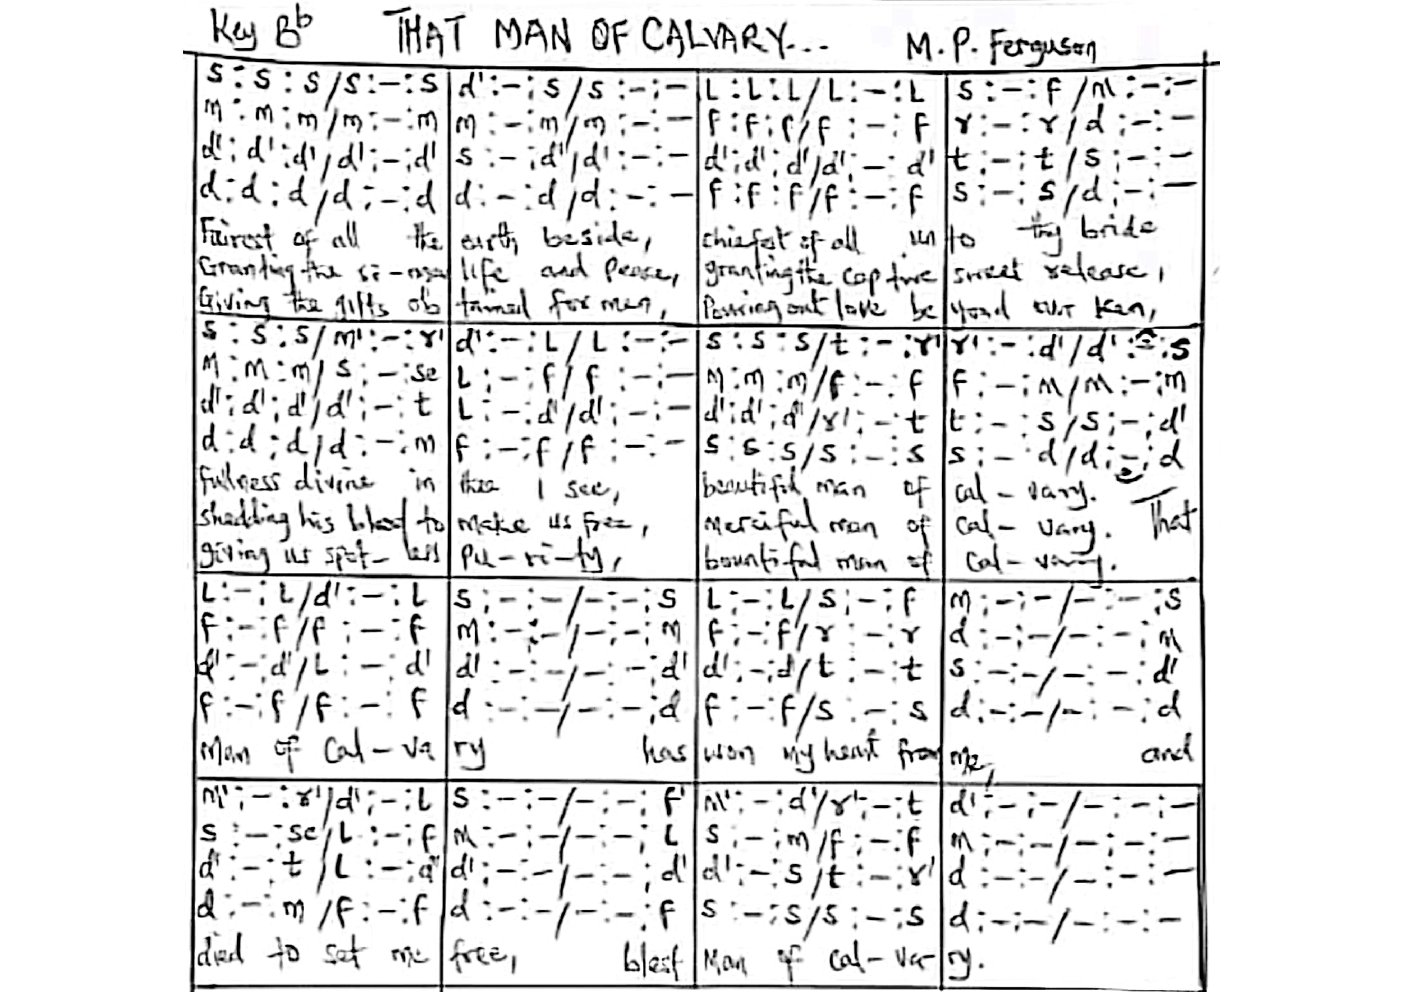 Key Bb THAT MAN OF CALVARY... M. P. Ferguson
s : s : s / s : - : s | d' : - : s / s : - : - | L : L : L / L : - : L | s : - : f / m : - : -
m : m : m / m : - : m | m : - : m / m : - : - | f : f : f / f : - : f | r : - : r / d : - : -
d' : d' : d' / d' : - : d' | s : - : d' / d' : - : - | d' : d' : d' / d' : - : d' | t : - : t / s : - : -
d : d : d / d : - : d | d : - : d / d : - : - | f : f : f / f : - : f | s : - : s / d : - : -
Fairest of all the earth beside, chiefest of all un to thy bride
Granting the si-nner life and Peace, granting the captive sweet release,
Giving the gifts ob tained for men, Pouring out love be yond our ken,
s : s : s / m' : - : r' | d' : - : L / L : - : - | s : s : s / t : - : r' | r' : - : d' / d' : - : s
m : m : m / s : - : se | L : - : f / f : - : - | m : m : m / f : - : f | f : - : m / m : - : m
d' : d' : d' / d' : - : t | L : - : d' / d' : - : - | d' : d' : d' / r' : - : t | t : - : s / s : - : d'
d : d : d / d : - : m | f : - : f / f : - : - | s : s : s / s : - : s | s : - : d / d : - : d
fullness divine in thee I see, beautiful man of cal-vary.
shedding his blood to make us free, merciful man of cal-vary. That
giving us spot-less Pu-ri-ty, bountiful man of cal-vary.
L : - : L / d' : - : L | s : - : - / - : - : s | L : - : L / s : - : f | m : - : - / - : - : s
f : - : f / f : - : f | m : - : - / - : - : m | f : - : f / r : - : r | d : - : - / - : - : m
d' : - : d' / L : - : d' | d' : - : - / - : - : d' | d' : - : d / t : - : t | s : - : - / - : - : d'
f : - : f / f : - : f | d : - : - / - : - : d | f : - : f / s : - : s | d : - : - / - : - : d
Man of Cal-va ry has won my heart from me, and
m' : - : r' / d' : - : L | s : - : - / - : - : f' | m' : - : d' / r' : - : t | d' : - : - / - : - : -
s : - : se / L : - : f | m : - : - / - : - : L | s : - : m / f : - : f | m : - : - / - : - : -
d' : - : t / L : - : d' | d' : - : - / - : - : d' | d' : - : s / t : - : r' | d : - : - / - : - : -
d : - : m / f : - : f | d : - : - / - : - : f | s : - : s / s : - : s | d : - : - / - : - : -
died to set me free, blest Man of cal-va- ry.